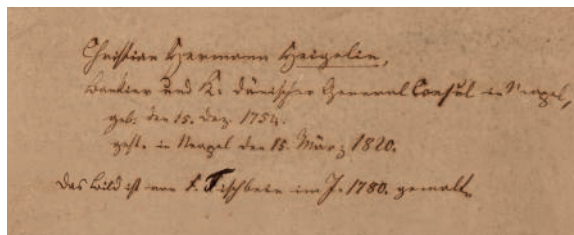 Christian Hermann Heigelin,
Bankier und K. dänischer General Consul in Neapel,
geb: den 15. Dez. 1754.
gest. in Neapel den 15. März 1820.
Das Bild ist von F. Tischbein im J. 1780. gemalt.